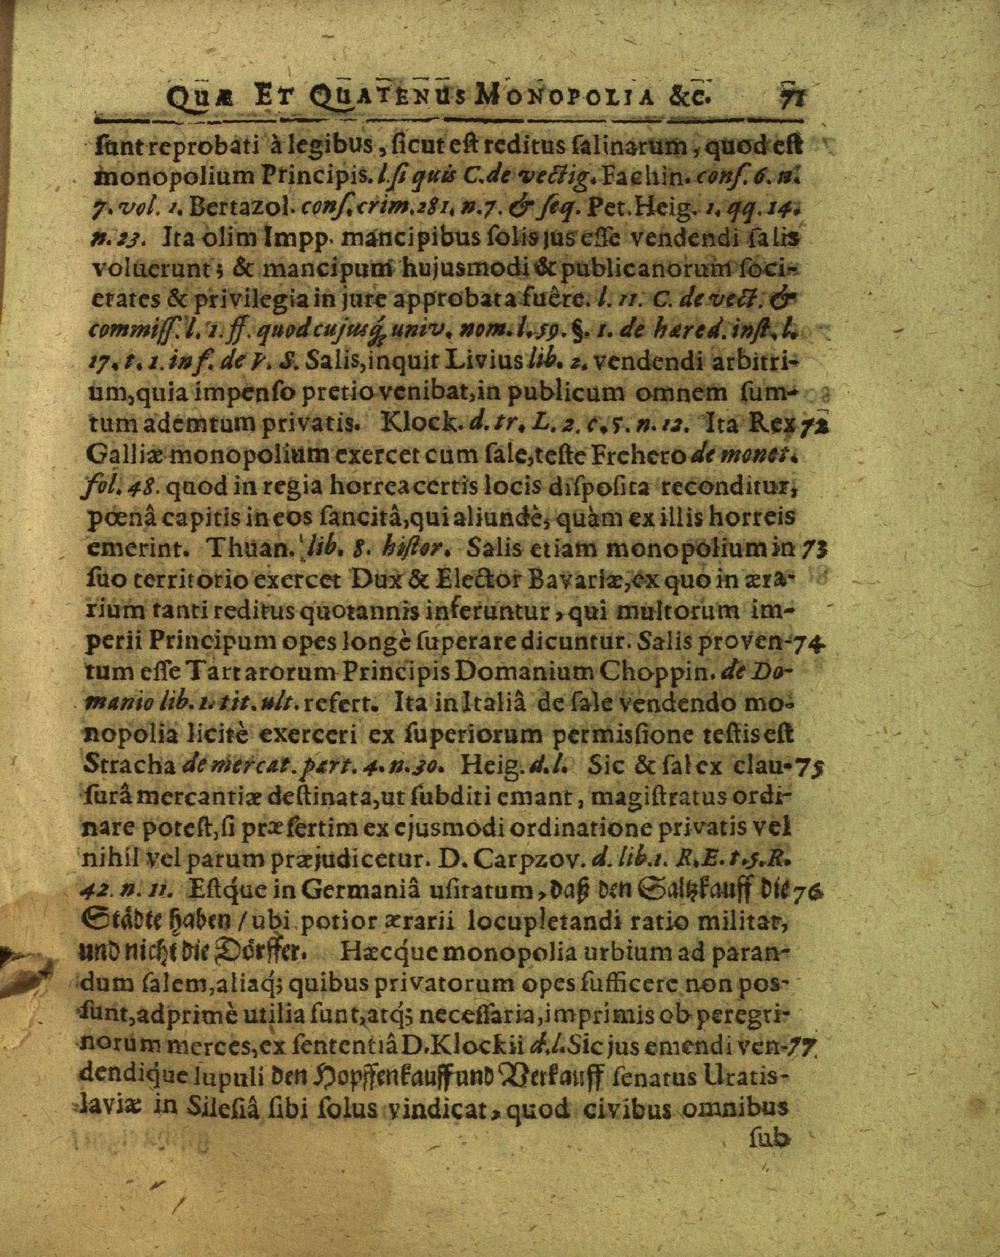 QUÆ ET QUATENUS MONOPOLIA &c. 71
ſunt reprobati à legibus, ſicut eſt reditus ſalinarum, quod eſt
monopolium Principis. l. ſi quis C. de vectig. Fachin. conſ. 6. n.
7. vol. 1. Bertazol. conſ. crim. 281. n. 7. & ſeq. Pet. Heig. 1. qq. 14.
n. 23. Ita olim Impp. mancipibus ſolis jus eſſe vendendi ſalis
voluerunt; & mancipum hujusmodi & publicanorum ſoci-
etates & privilegia in jure approbata fuêre. l. 11. C. de vect. &
commiſſ. l. 1. ff. quod cujusq; univ. nom. l. 59. §. 1. de hæred. inſt. l.
17. t. 1. inf. de P. S. Salis, inquit Livius lib. 2. vendendi arbitri-
um, quia impenſo pretio venibat, in publicum omnem ſum-
tum ademtum privatis. Klock. d. tr. L. 2. c. 5. n. 12. Ita Rex 72
Galliæ monopolium exercet cum ſale, teſte Frehero de monet.
fol. 48. quod in regia horrea certis locis diſpoſita reconditur,
pœnâ capitis in eos ſancitâ, qui aliundè, quàm ex illis horreis
emerint. Thuan. lib. 8. hiſtor. Salis etiam monopolium in 73
ſuo territorio exercet Dux & Elector Bavariæ, ex quo in æra-
rium tanti reditus quotannis inferuntur, qui multorum im-
perii Principum opes longè ſuperare dicuntur. Salis proven- 74
tum eſſe Tartarorum Principis Domanium Choppin. de Do-
manio lib. 1. tit. ult. refert. Ita in Italiâ de ſale vendendo mo-
nopolia licitè exerceri ex ſuperiorum permiſſione teſtis eſt
Stracha de mercat. part. 4. n. 30. Heig. d. l. Sic & ſal ex clau- 75
ſurâ mercantiæ deſtinata, ut ſubditi emant, magiſtratus ordi-
nare poteſt, ſi præſertim ex ejusmodi ordinatione privatis vel
nihil vel parum præjudicetur. D. Carpzov. d. lib. 1. R. E. t. 5. R.
42. n. 11. Eſtq́ue in Germaniâ uſitatum, daß den Saltzkauff die 76
Städte haben / ubi potior ærarii locupletandi ratio militat,
und nicht die Dörffer. Hæcque monopolia urbium ad paran-
dum ſalem, aliaq́; quibus privatorum opes ſufficere non pos-
ſunt, adprimè utilia ſunt, atq́; neceſſaria, imprimis ob peregri-
norum merces, ex ſententiâ D. Klockii d. l. Sic jus emendi ven- 77
dendiq́ue lupuli den Hopffenkauff und Verkauff ſenatus Uratis-
laviæ in Sileſiâ ſibi ſolus vindicat, quod civibus omnibus
ſub